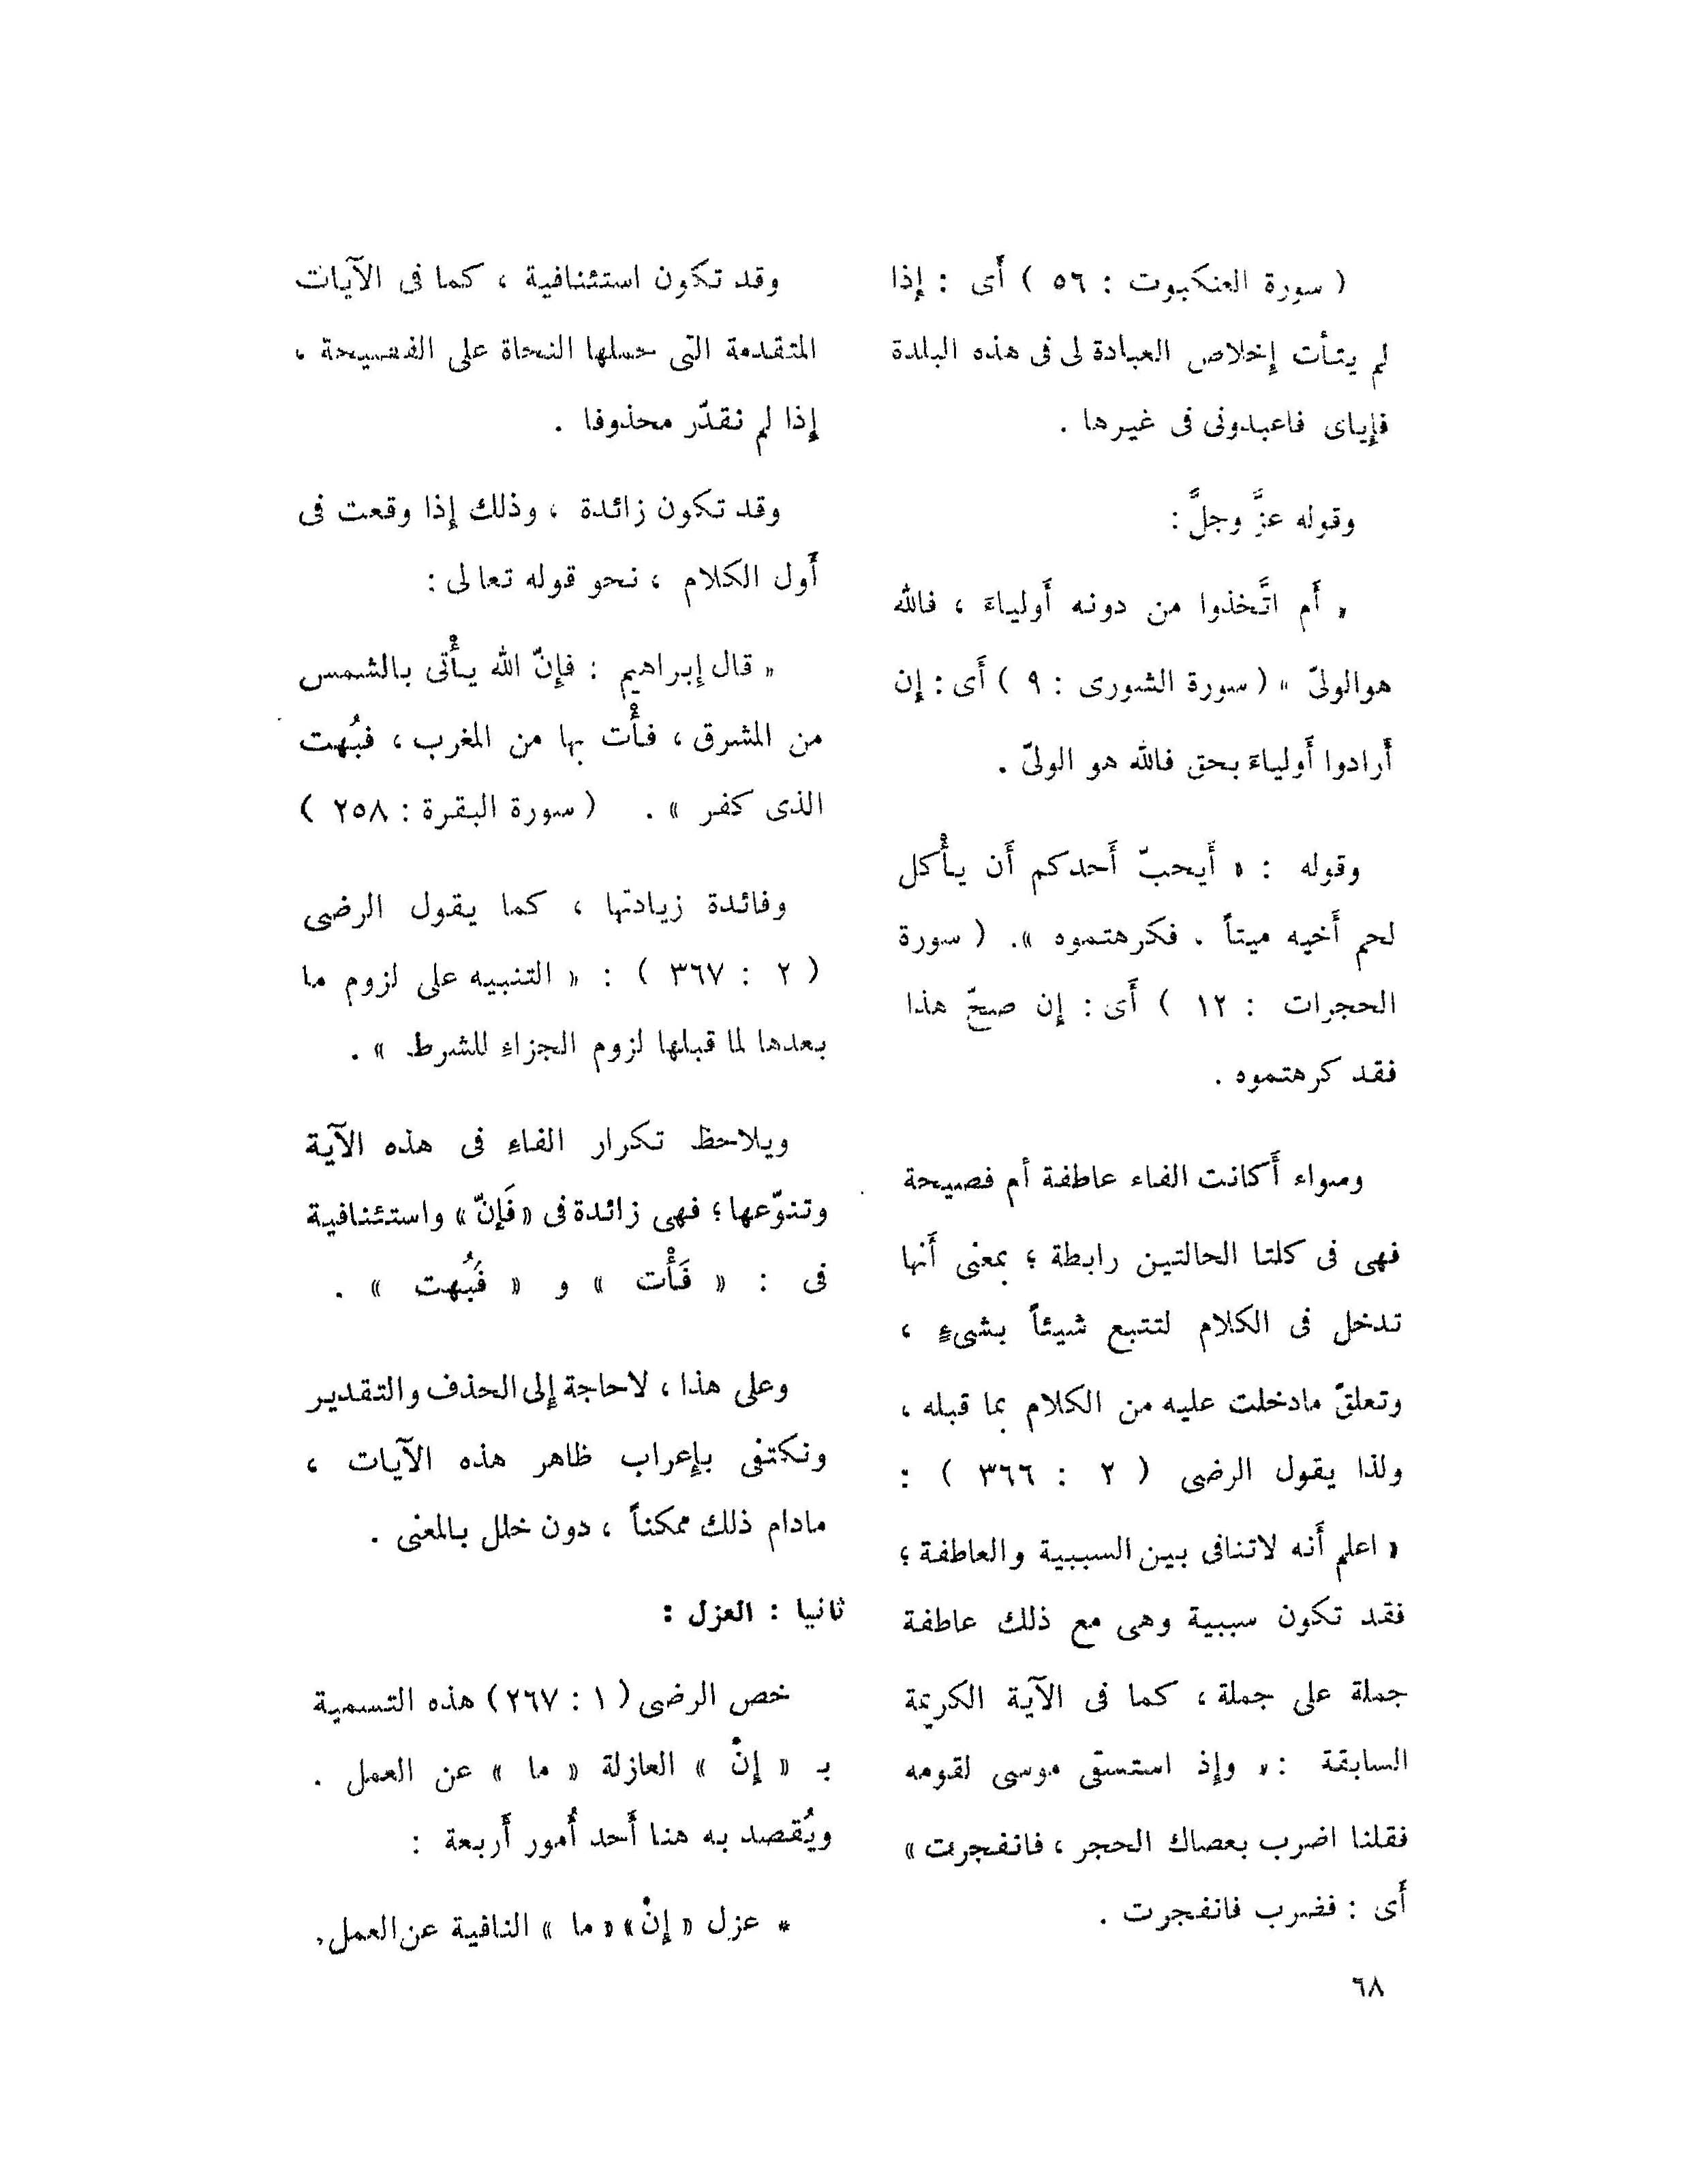 ( سورة العنكبوت : ٥٦ ) أَى : إذا
لم يتأت إخلاص العبادة لى فى هذه البلدة
فإياى فاعبدونى فى غيرها .
وقوله عزَّ وجلَّ :
« أَم اتَّخذوا من دونه أَولياءَ ، فالله
هوالولىّ » ( سورة الشورى : ٩ ) أَى : إن
أَرادوا أَولياءَ بحق فالله هو الولىّ .
وقوله : « أَيحبّ أَحدكم أَن يأْكل
لحم أَخيه ميتاً . فكرهتموه ». ( سورة
الحجرات : ١٢ ) أَى : إن صحّ هذا
فقد كرهتموه .
وسواء أَكانت الفاء عاطفة أم فصيحة
فهى فى كلتا الحالتين رابطة ؛ بمعنى أَنها
تدخل فى الكلام لتتبع شيئاً بشىءٍ ،
وتعلقّ مادخلت عليه من الكلام بما قبله ،
ولذا يقول الرضى ( ٢ : ٣٦٦ ) :
« اعلم أَنه لاتنافى بين السببية والعاطفة ؛
فقد تكون سببية وهى مع ذلك عاطفة
جملة على جملة ، كما فى الآية الكريمة
السابقة : « وإذ استسقى موسى لقومه
فقلنا اضرب بعصاك الحجر ، فانفجرت »
أَى : فضرب فانفجرت .
وقد تكون استئنافية ، كما فى الآيات
المتقدمة التى حملها النحاة على الفصيحة ،
إذا لم نقدّر محذوفا .
وقد تكون زائدة ، وذلك إذا وقعت فى
أَول الكلام ، نحو قوله تعالى :
« قال إبراهيم : فإنّ الله يأْتى بالشمس
من المشرق ، فأْت بها من المغرب ، فبُهت
الذى كفر » . ( سورة البقرة : ٢٥٨ )
وفائدة زيادتها ، كما يقول الرضى
( ٢ : ٣٦٧ ) : « التنبيه على لزوم ما
بعدها لما قبلها لزوم الجزاءِ للشرط » .
ويلاحظ تكرار الفاءِ فى هذه الآية
وتنوّعها ؛ فهى زائدة فى « فَإنّ » واستئنافية
فى : « فَأْت » و « فَبُهت » .
وعلى هذا ، لاحاجة إلى الحذف والتقدير
ونكتفى بإعراب ظاهر هذه الآيات ،
مادام ذلك ممكناً ، دون خلل بالمعنى .
ثانيا : العزل :
خص الرضى ( ١ : ٢٦٧ ) هذه التسمية
بـ « إنْ » العازلة « ما » عن العمل .
ويُقصد به هنا أَحد أُمور أَربعة :
* عزل « إنْ » « ما » النافية عن العمل ،
٦٨